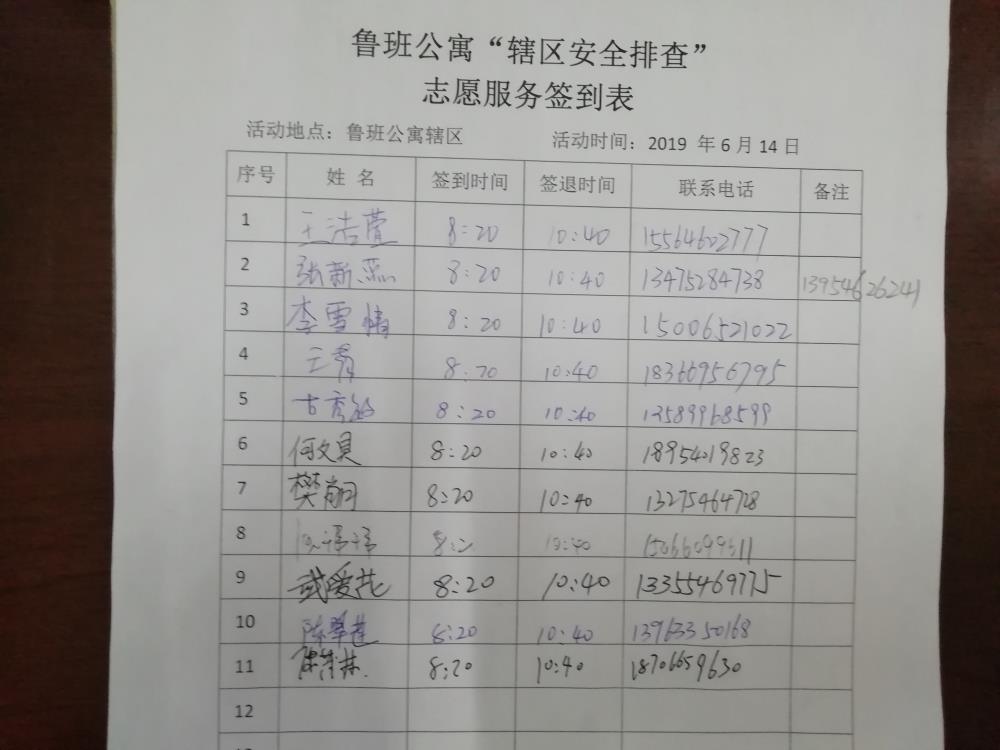 鲁班公寓“辖区安全排查”
志愿服务签到表
活动地点：鲁班公寓辖区 活动时间：2019 年 6 月 14 日
序号 姓 名 签到时间 签退时间 联系电话 备注
1 王洁萱 8:20 10:40 15564602777
2 张新燕 8:20 10:40 13475284738 13954626241
3 李雪情 8:20 10:40 15006521022
4 王青 8:20 10:40 18366956795
5 古秀 8:20 10:40 13589968599
6 何文贝 8:20 10:40 18954019823
7 樊 8:20 10:40 13275464728
8 10:40
9 爱花 8:20 10:40 13355469775
10 陈翠莲 8:20 10:40 13963350168
11 8:20 10:40 18706659630
12